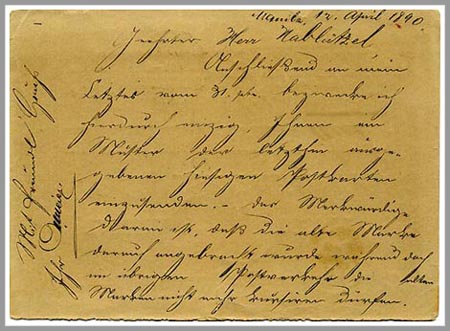 Manila, 12. April 1890
Geehrter Herr Nablützel
Anschließend an mein
Letztes vom 31. pto. bezwecke ich
hierdurch einzig, Ihnen ein
Muster der letzthin ausge-
gebenen hiesigen Postkarten
einzusenden. - Das Merkwürdige
daran ist, daß die alte Marke
darauf angebracht wurde während doch
im übrigen Postverkehr die alten
Marken nicht mehr kursiren dürfen.
Mit freundl Gruß
Ihr